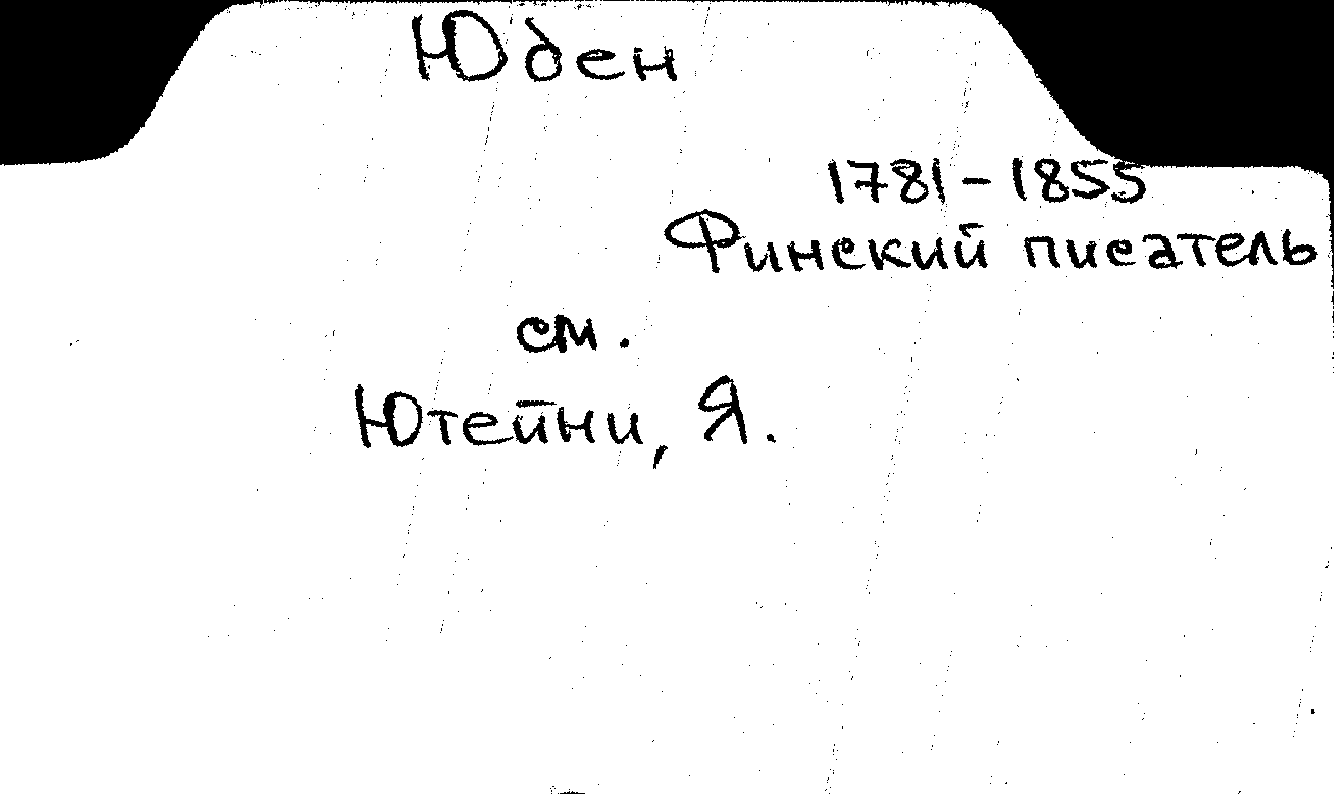 Юден
1781-1855
Финский писатель
см.
Ютейни, Я.